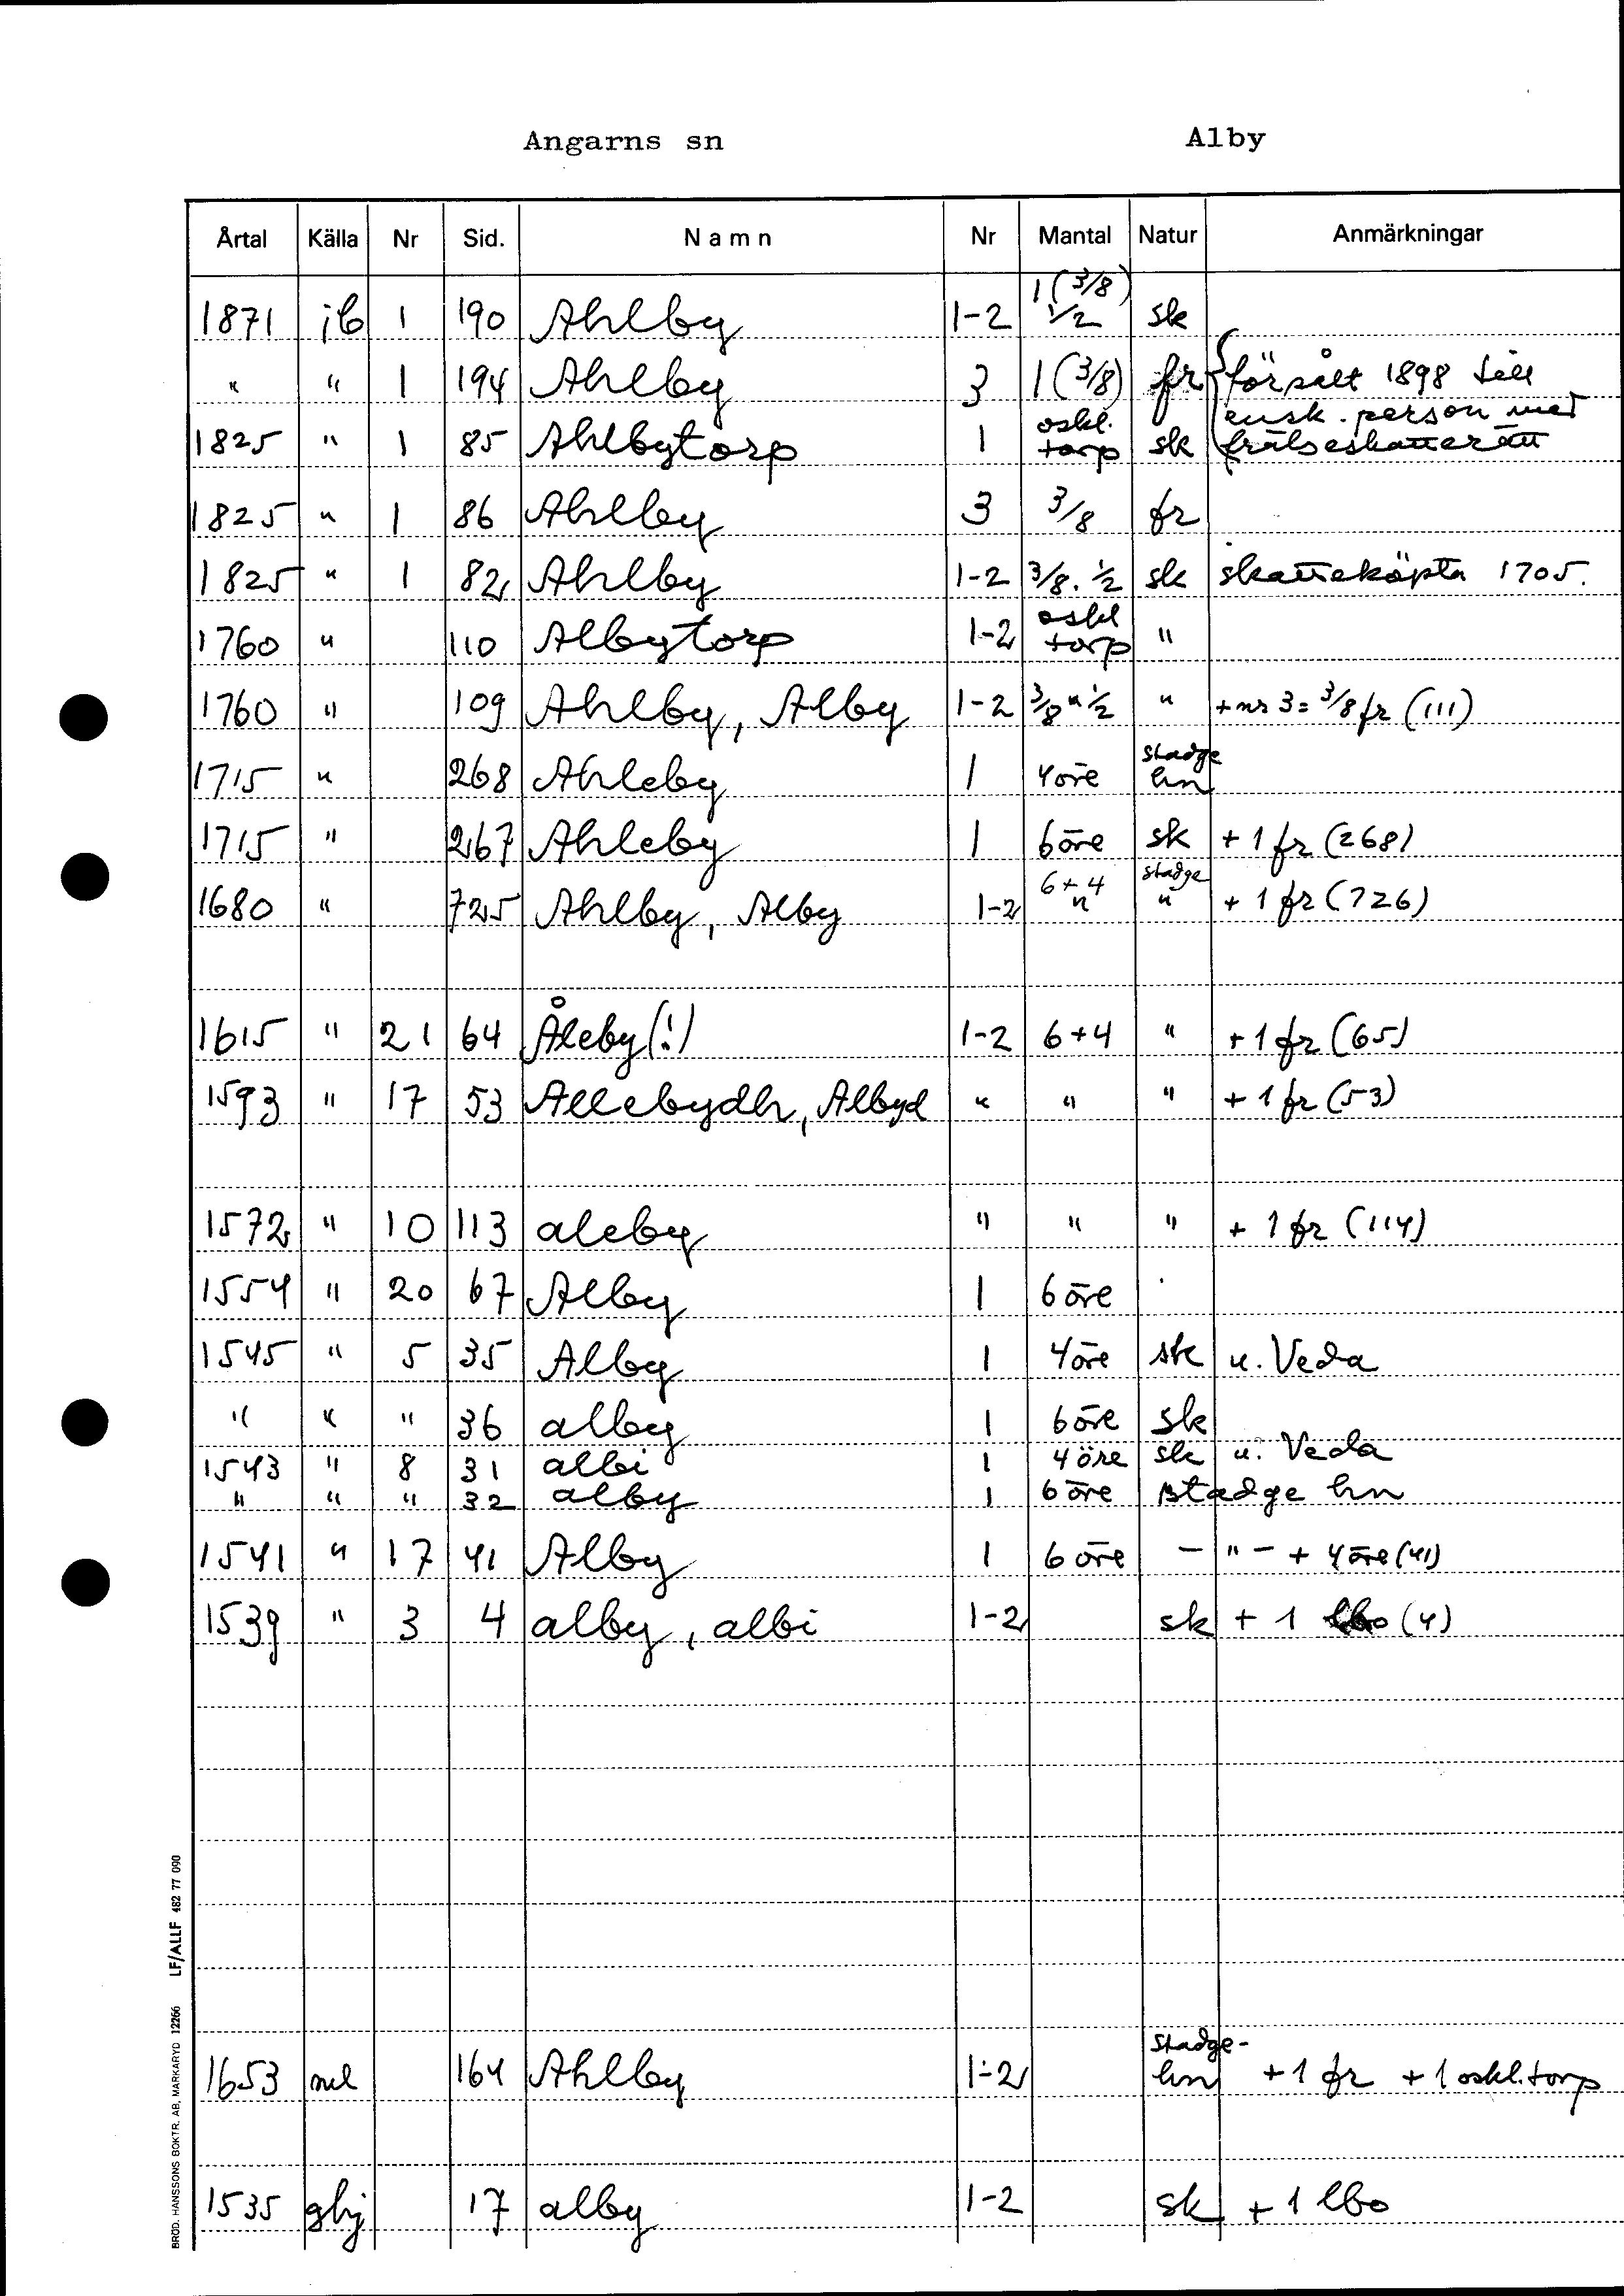 Angarns sn Alby
Årtal Källa Nr Sid. Namn Nr Mantal Natur Anmärkningar
1871 jb 1 190 Ahlby 1-2 1 (3/8) 1/2 sk
" " 1 194 Ahlby 3 1 (3/8) fr försålt 1898 till
ensk. person med
1825 " 1 85 Ahlbytorp 1 oskl. torp sk frälseskatterätt
1825 " 1 86 Ahlby 3 3/8 fr
1825 " 1 82 Ahlby 1-2 3/8. 1/2 sk skatteköpta 1705.
1760 " 110 Albytorp 1-2 oskl torp "
1760 " 109 Ahlby, Alby 1-2 3/8 " 1/2 " + nr 3 = 3/8 fr (111)
1715 " 268 Ahleby 1 4 öre stadge hn
1715 " 267 Ahleby 1 6 öre sk + 1 fr (268)
1680 " 725 Ahlby, Alby 1-2 6+4 " stadge " + 1 fr (726)
1615 " 21 64 Åleby (!) 1-2 6+4 " + 1 fr (65)
1593 " 17 53 Allebydh, Albyd " " " + 1 fr (53)
1572 " 10 113 aleby " " " + 1 fr (114)
1554 " 20 67 Alby 1 6 öre
1545 " 5 35 Alby 1 4 öre sk u. Veda
" " " 36 alby 1 6 öre sk
1543 " 8 31 albi 1 4 öre sk u. Veda
" " " 32 alby 1 6 öre stadge hn
1541 " 17 41 Alby 1 6 öre – " – + 4 öre (41)
1539 " 3 4 alby, albi 1-2 sk + 1 lbo (4)
1653 ml 164 Ahlby 1-2 stadge- hn + 1 fr + 1 oskl. torp
1535 ghj 17 alby 1-2 sk + 1 lbo
BRÖD. HANSSONS BOKTR. AB, MARKARYD 12266 LF/ALLF 482 77 090